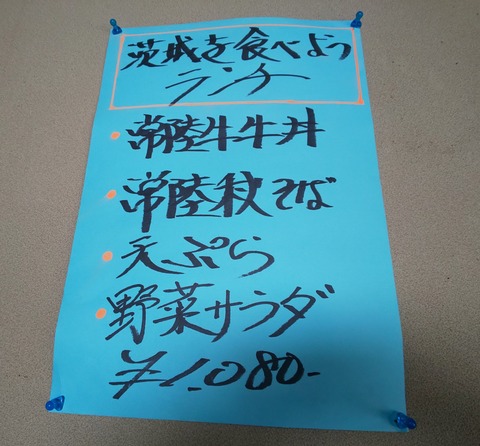 茨城を食べよう
ランチ
常陸牛牛丼
常陸秋そば
天ぷら
野菜サラダ
¥1,080-